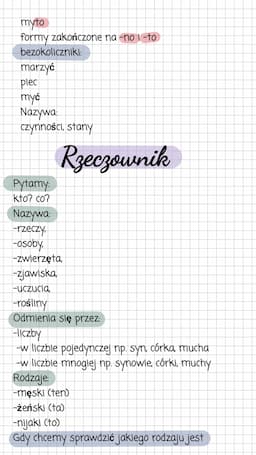 myto
formy zakończone na -no i -to
bezokoliczniki:
marzyć
piec
myć
Nazywa:
czynności, stany
Rzeczownik
Pytamy:
kto? co?
Nazywa:
-rzeczy,
-osoby,
-zwierzęta,
-zjawiska,
-uczucia,
-rośliny
Odmienia się przez:
-liczby
-w liczbie pojedynczej np. syn, córka, mucha
-w liczbie mnogiej np. synowie, córki, muchy
Rodzaje:
-męski (ten)
-żeński (ta)
-nijaki (to)
Gdy chcemy sprawdzić jakiego rodzaju jest